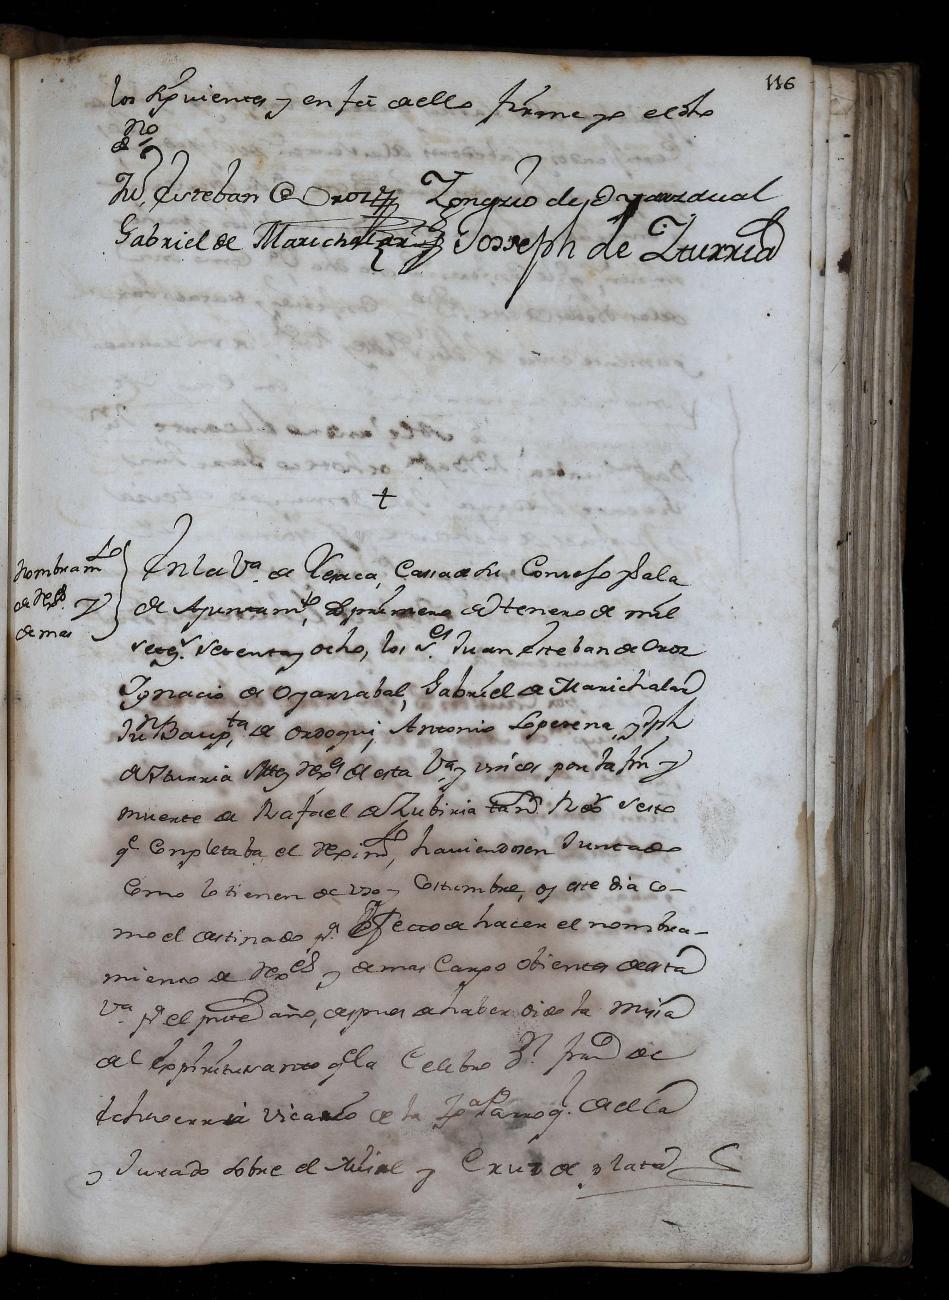 116
los siguientes y en fee de ello firme yo el dho
Juº Esteban de Oroz Ygnᵒ de Oyarzaual
Gabriel de Marichalar Josseph de Yturria
+
Nombramᵗᵒ
de Rexᵉˢ y
demas
En la Vᵃ de Vexa, Cassa de su Consejo y sala
de Ayuntamᵗᵒ, a primero de henero de mil
setezˢ setenta y ocho, los Sʳᵉˢ Juan Esteban de Oroz
Ygnacio de Oyarzabal, Gabriel de Marichalar
Juⁿ Baupᵗᵃ de Ordoqui, Antonio Loperena, y Jph
de Yturria Rexᵉˢ de esta Vᵃ y unicos por la fin y
muerte de Rafael de Zubiria Rexᵒʳ sesto
qᵉ Conpletaba el Reximᵗᵒ, haviendosen Juntado
Como lo tienen de uso y Costumbre, oy este dia co-
mo el destinado pᵃ efecto de hacer el nombra-
miento de Rexᵉˢ y demas Cargo obientes de esta
Vᵃ pᵃ el preste año, despues de haber oido la Missa
del Espiritu santo qᵉ la Celebro Dⁿ Franᶜᵒ de
Echeverria Vicario de la Parroqˡ de ella
y Jurado sobre el Misal y Cruz de plata